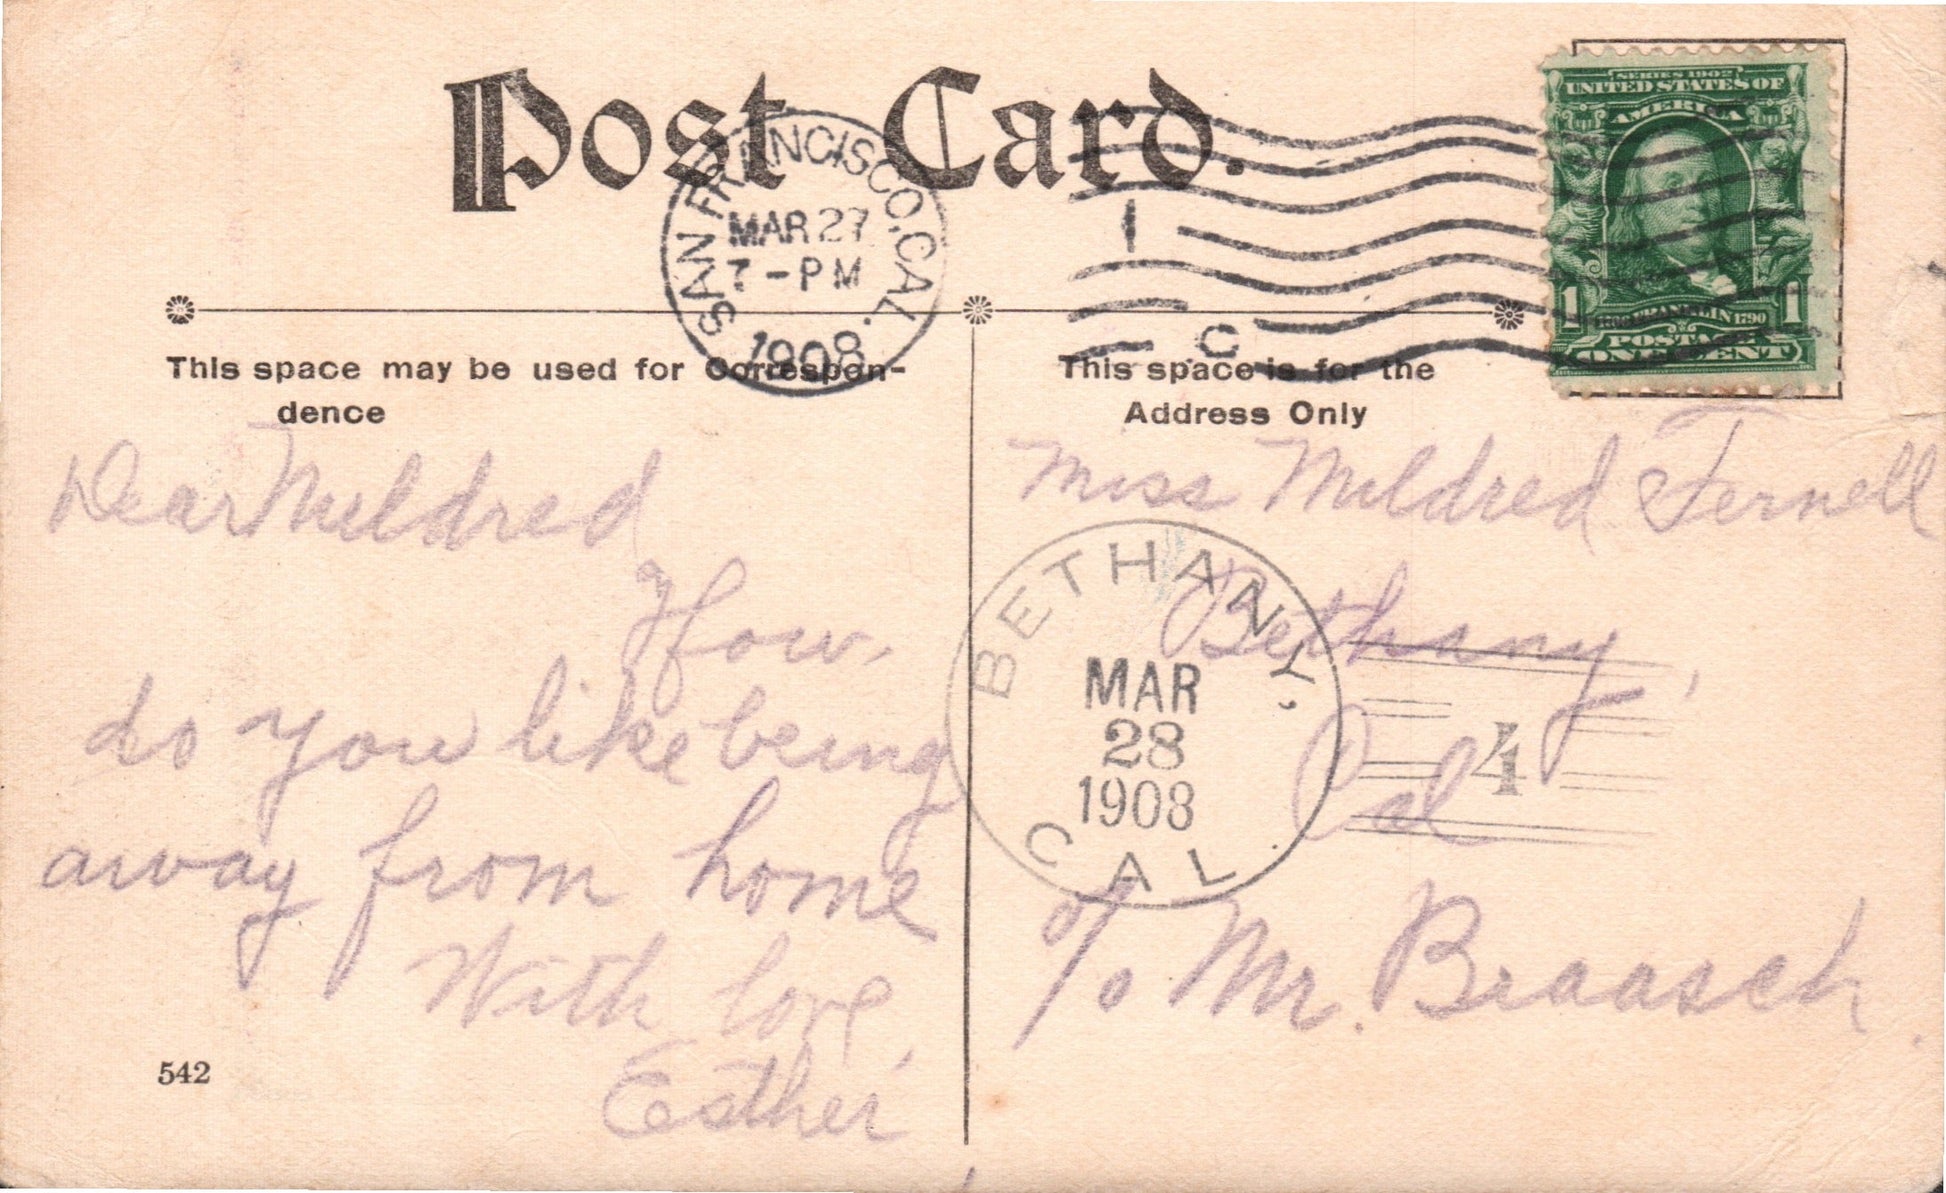 Post Card.
SAN FRANCISCO, CAL.
MAR 27
7-PM
1908
1
C
SERIES 1902
UNITED STATES OF
AMERICA
FRANKLIN 1790
1 1
POSTAGE
ONE CENT
This space may be used for Correspon-
dence
This space is for the
Address Only
Dear Mildred
How
do you like being
away from home
With love,
Esther
542
Miss Mildred Fernell
Bethany,
Cal
c/o Mr. Braasch.
BETHANY,
MAR
28
1908
CAL.
4